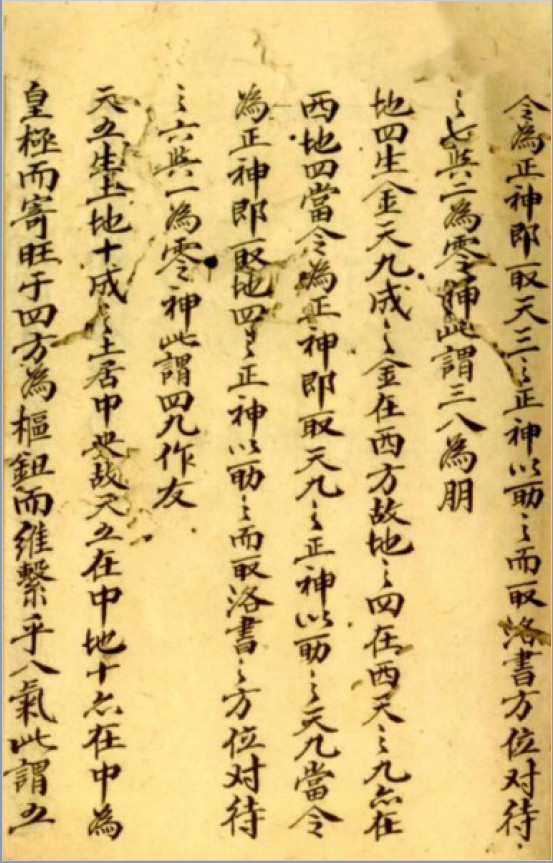 令為正神即取天三之正神以助之而取洛書方位对待
之七與二為零神此謂三八為朋
地四生金天九成之金在西方故地之四在西天之九亦在
西地四當令為正神即取天九之正神以助之天九當令
為正神即取地四之正神以助之而取洛書之方位对待
之六與一為零神此謂四九作友
天五生土地十成之土居中央故天五在中地十亦在中為
皇極而寄旺于四方為樞鈕而維繫乎八氣此謂五